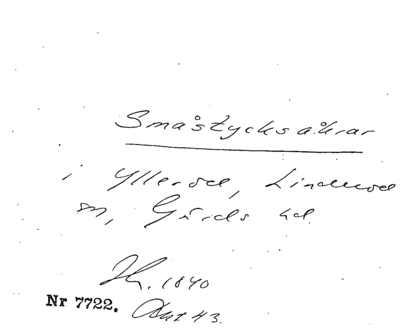 Småstycksåkrar
i Ylleröd, Linderöd
sn, Gärds hd.
1840
Nr 7722.